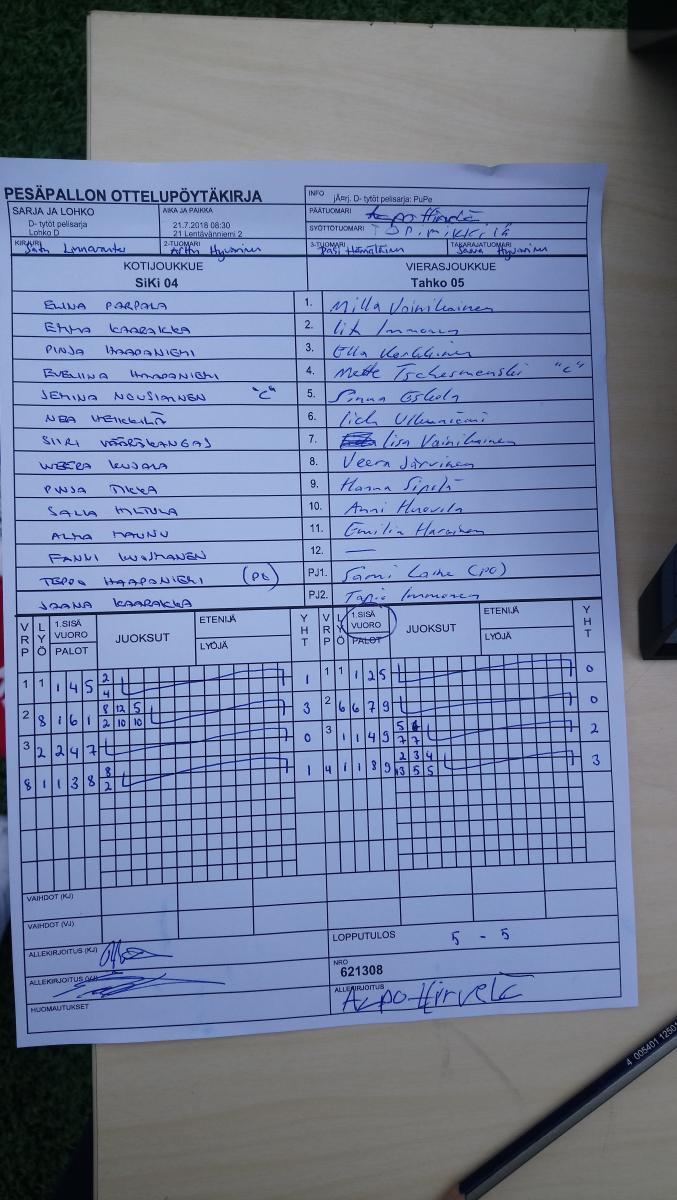 PESÄPALLON OTTELUPÖYTÄKIRJA
INFO
jÃ¤rj. D- tytöt pelisarja: PuPe
SARJA JA LOHKO
D- tytöt pelisarja
Lohko D
AIKA JA PAIKKA
21.7.2018 08:30
21 Lentävänniemi 2
PÄÄTUOMARI Aapo Hirvelä
SYÖTTÖTUOMARI
KIRJURI Satu
2-TUOMARI Arttu Hyvönen
3-TUOMARI Pasi Hämäläinen
TAKARAJATUOMARI Saana Hyvönen
KOTIJOUKKUE
SiKi 04
VIERASJOUKKUE
Tahko 05
ELINA PARPALA 1. Milla Vainikainen
EMMA KAARAKKA 2. Iita Immonen
PINJA HAAPANIEMI 3. Ella Kerkkänen
EVELIINA HAAPANIEMI 4. Mette Tschesmenski "C"
JEMINA NOUSIAINEN "C" 5. Pinna Eskola
NEA HEIKKILÄ 6.
SIIRI VÄÄRÄKANGAS 7. Iisa Vainikainen
WEERA KUJALA 8. Veera Järvinen
PINJA TIKKA 9. Hanna Sipilä
SALLA HILTULA 10. Anni Huovila
ALMA MAUNU 11. Emilia Haroinen
FANNI KUISMANEN 12. —
TEPPO HAAPANIEMI (PG) PJ1. Sami Laine (PG)
JAANA KAARAKKA PJ2. Tapio Immonen
VRP LYÖ 1.SISÄ VUORO PALOT JUOKSUT ETENIJÄ LYÖJÄ YHT VRP LYÖ 1.SISÄ VUORO PALOT JUOKSUT ETENIJÄ LYÖJÄ YHT
1 1 1 4 5 2 1 1 1 1 2 5 0
4
2 8 1 6 1 8 12 5 3 2 6 6 7 9 0
2 10 10
3 2 2 4 7 0 3 1 1 4 9 5 6 2
7 7
8 1 1 3 8 8 1 4 1 1 8 9 2 3 4 3
2 13 5 5
VAIHDOT (KJ)
VAIHDOT (VJ)
ALLEKIRJOITUS (KJ)
LOPPUTULOS 5 - 5
ALLEKIRJOITUS (VJ)
NRO
621308
HUOMAUTUKSET
ALLEKIRJOITUS Aapo Hirvelä
4 005401 12501